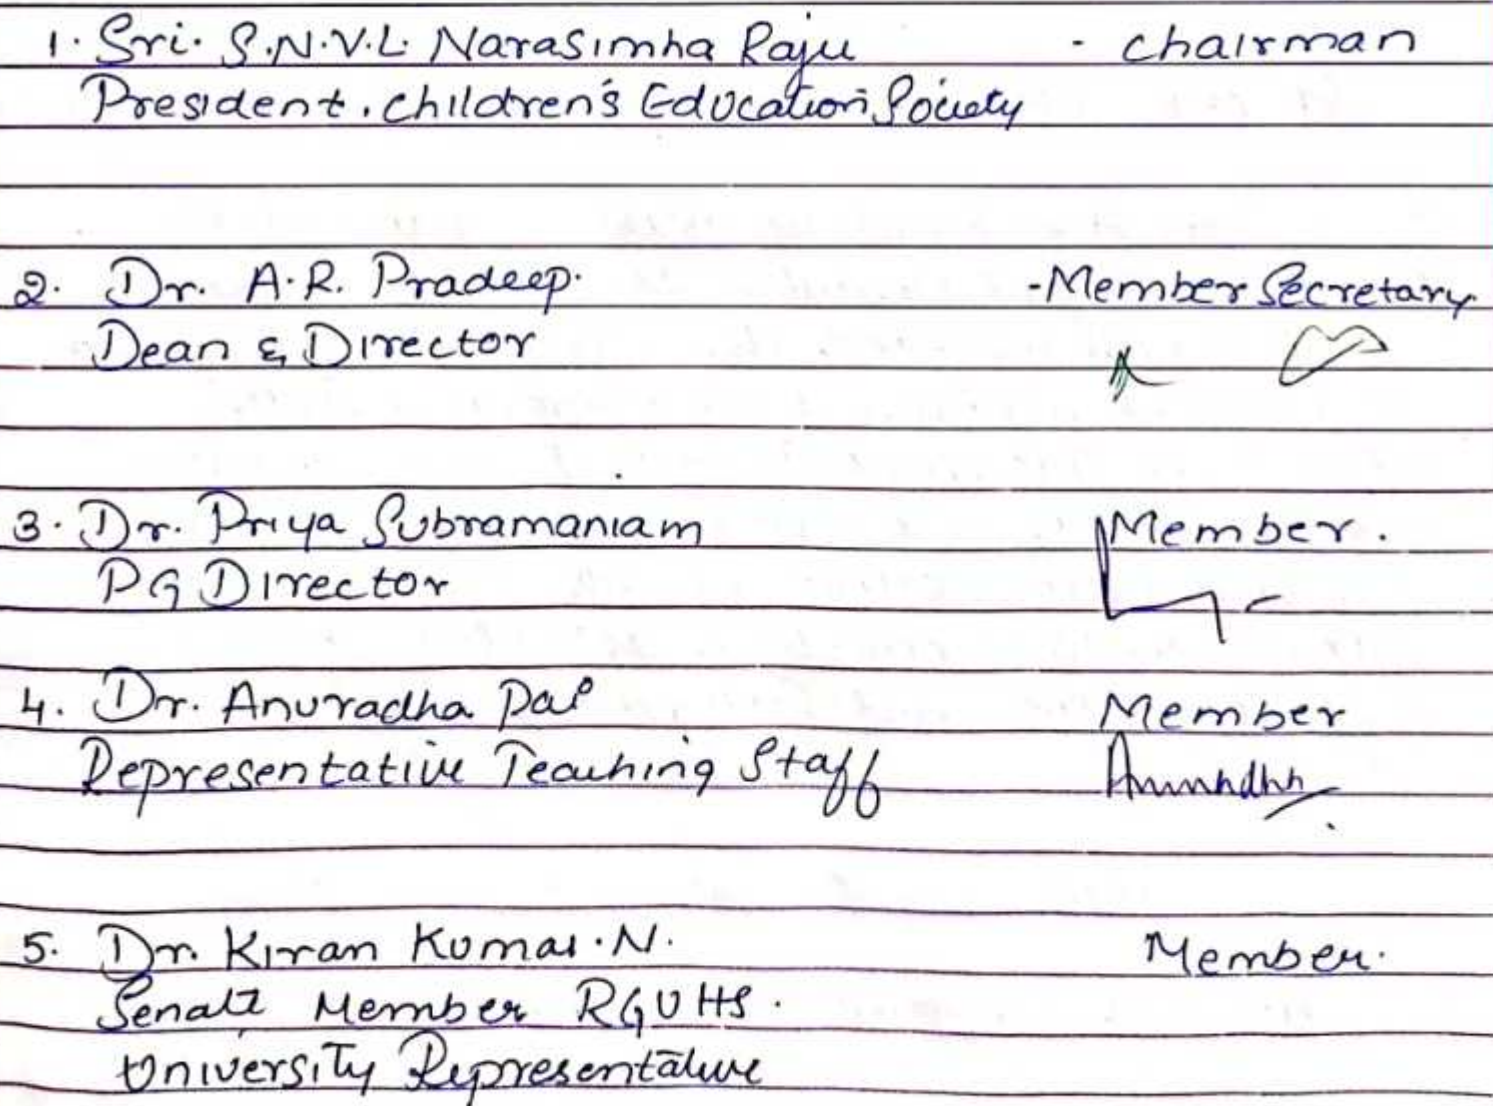 1. Sri. S.N.V.L. Narasimha Raju - Chairman
President. Children's Education Society
2. Dr. A.R. Pradeep. - Member Secretary
Dean & Director
3. Dr. Priya Subramaniam Member.
PG Director
4. Dr. Anuradha Pai Member
Representative Teaching Staff Anuradha
5. Dr. Kiran Kumar.N. Member.
Senate Member RGUHS.
University Representative